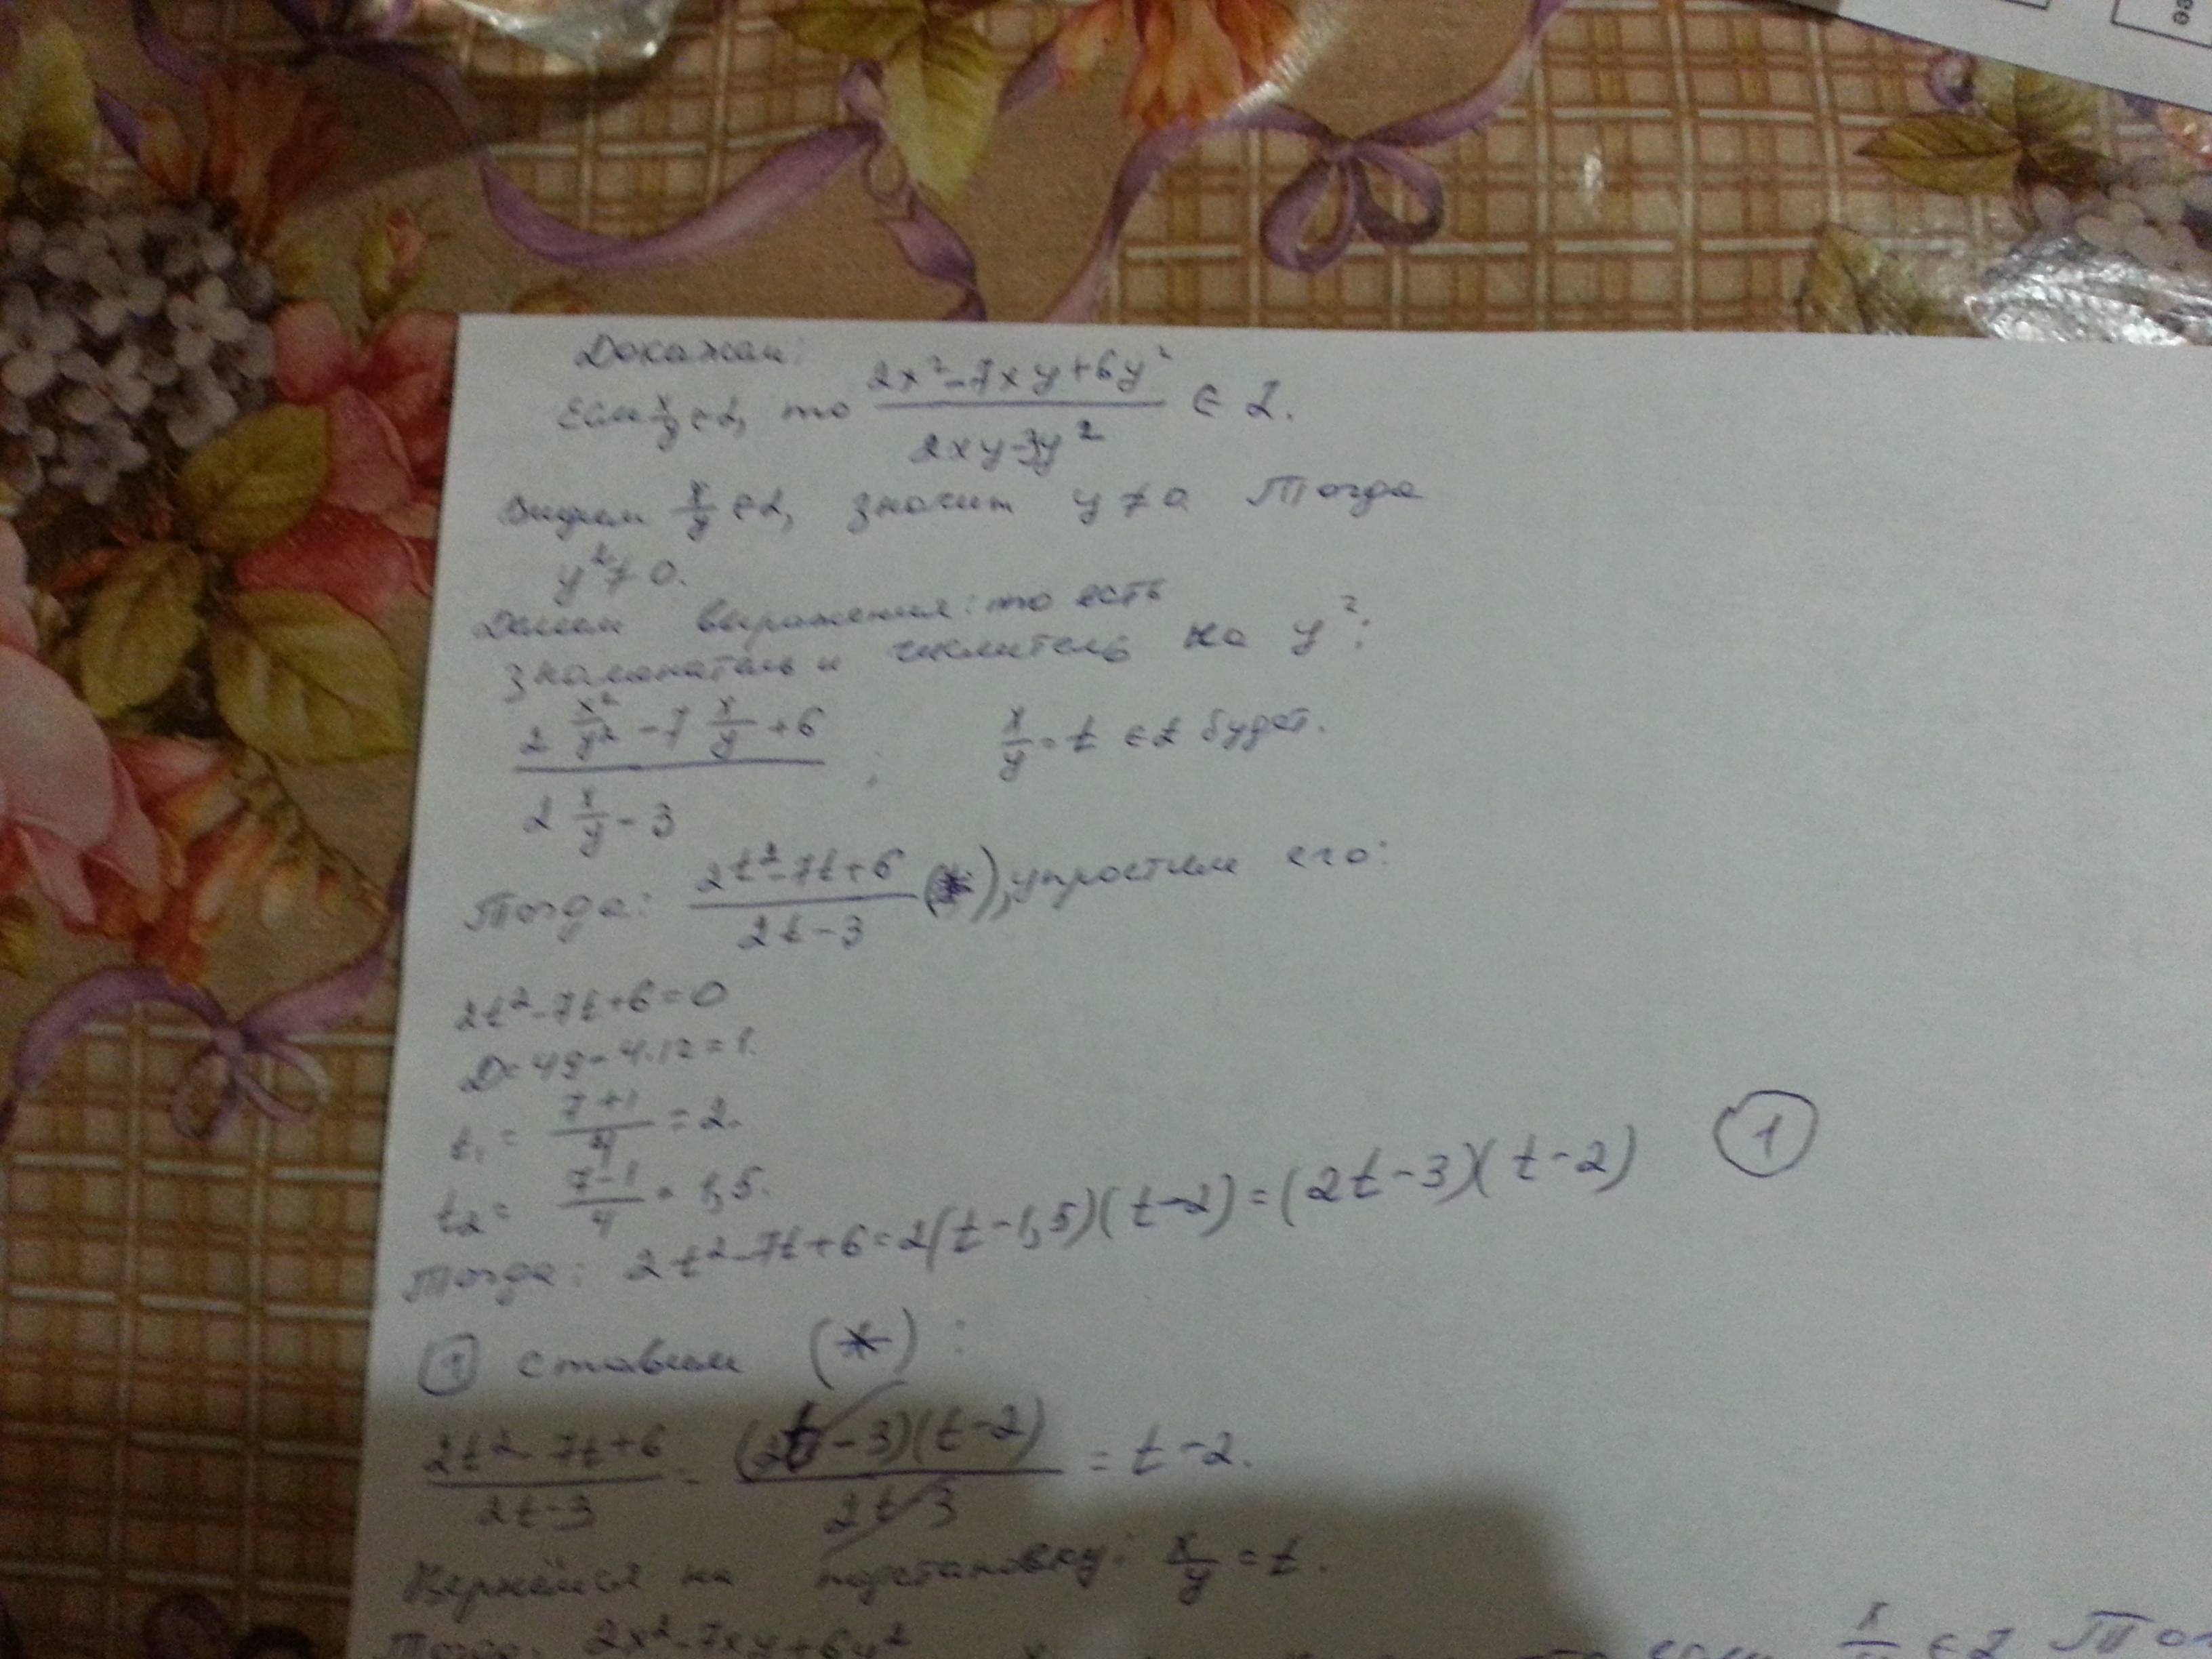 Докажем:
Если x/y ∈ Z, то (2x²-7xy+6y²)/(2xy-3y²) ∈ Z.
Видим x/y ∈ Z, значит y ≠ 0 Тогда
y² ≠ 0.
Делим выражения: то есть
знаменатель и числитель на y²:
(2 x²/y² - 7 x/y + 6)/(2 x/y - 3) ; x/y = t ∈ Z будет.
Тогда: (2t²-7t+6)/(2t-3) (*), упростим его:
2t²-7t+6=0
D=49-4·12=1.
t₁ = (7+1)/4 = 2.
t₂ = (7-1)/4 = 1,5.
Тогда: 2t²-7t+6=2(t-1,5)(t-2)=(2t-3)(t-2) ①
① ставим (*):
(2t²-7t+6)/(2t-3) = (2t-3)(t-2)/(2t-3) = t-2.
Вернёмся на подстановку: x/y = t.
Тогда: 2x²-7xy+6y² если x/y ∈ Z То